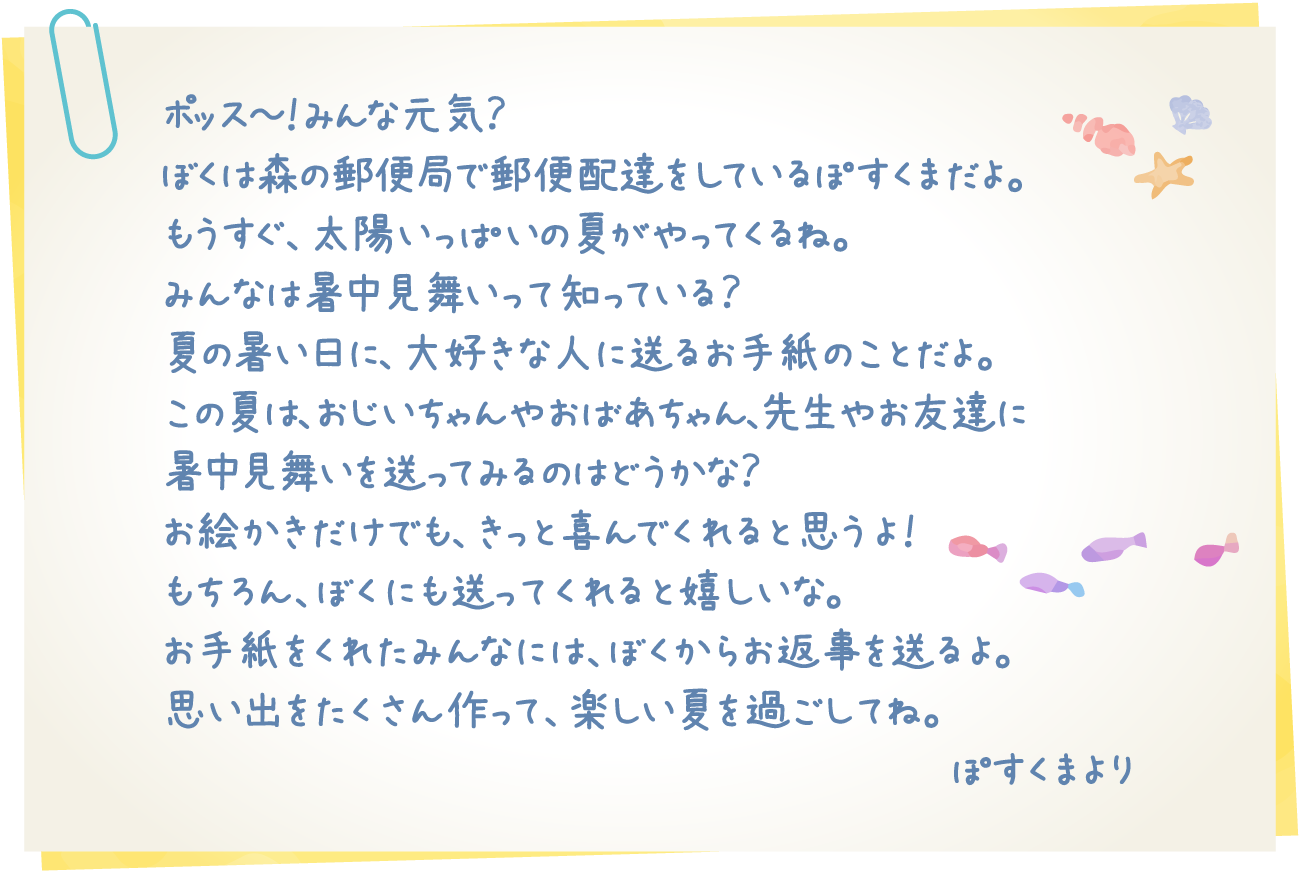 ポッス～！みんな元気？
ぼくは森の郵便局で郵便配達をしているぽすくまだよ。
もうすぐ、太陽いっぱいの夏がやってくるね。
みんなは暑中見舞いって知っている？
夏の暑い日に、大好きな人に送るお手紙のことだよ。
この夏は、おじいちゃんやおばあちゃん、先生やお友達に
暑中見舞いを送ってみるのはどうかな？
お絵かきだけでも、きっと喜んでくれると思うよ！
もちろん、ぼくにも送ってくれると嬉しいな。
お手紙をくれたみんなには、ぼくからお返事を送るよ。
思い出をたくさん作って、楽しい夏を過ごしてね。
ぽすくまより